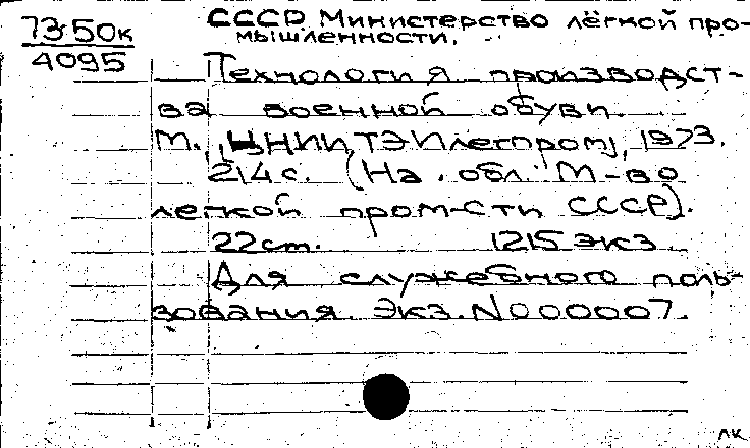 73-50к
4095
СССР. Министерство лёгкой про-
мышленности.
— Технология производст-
ва военной обуви.
М., „ЦНИИТЭИлегпром", 1973.
214 с. (На обл.: М-во
легкой пром-сти СССР).
22 см. 1215 экз.
Для служебного поль-
зования. Экз. N 000007.
ЛК